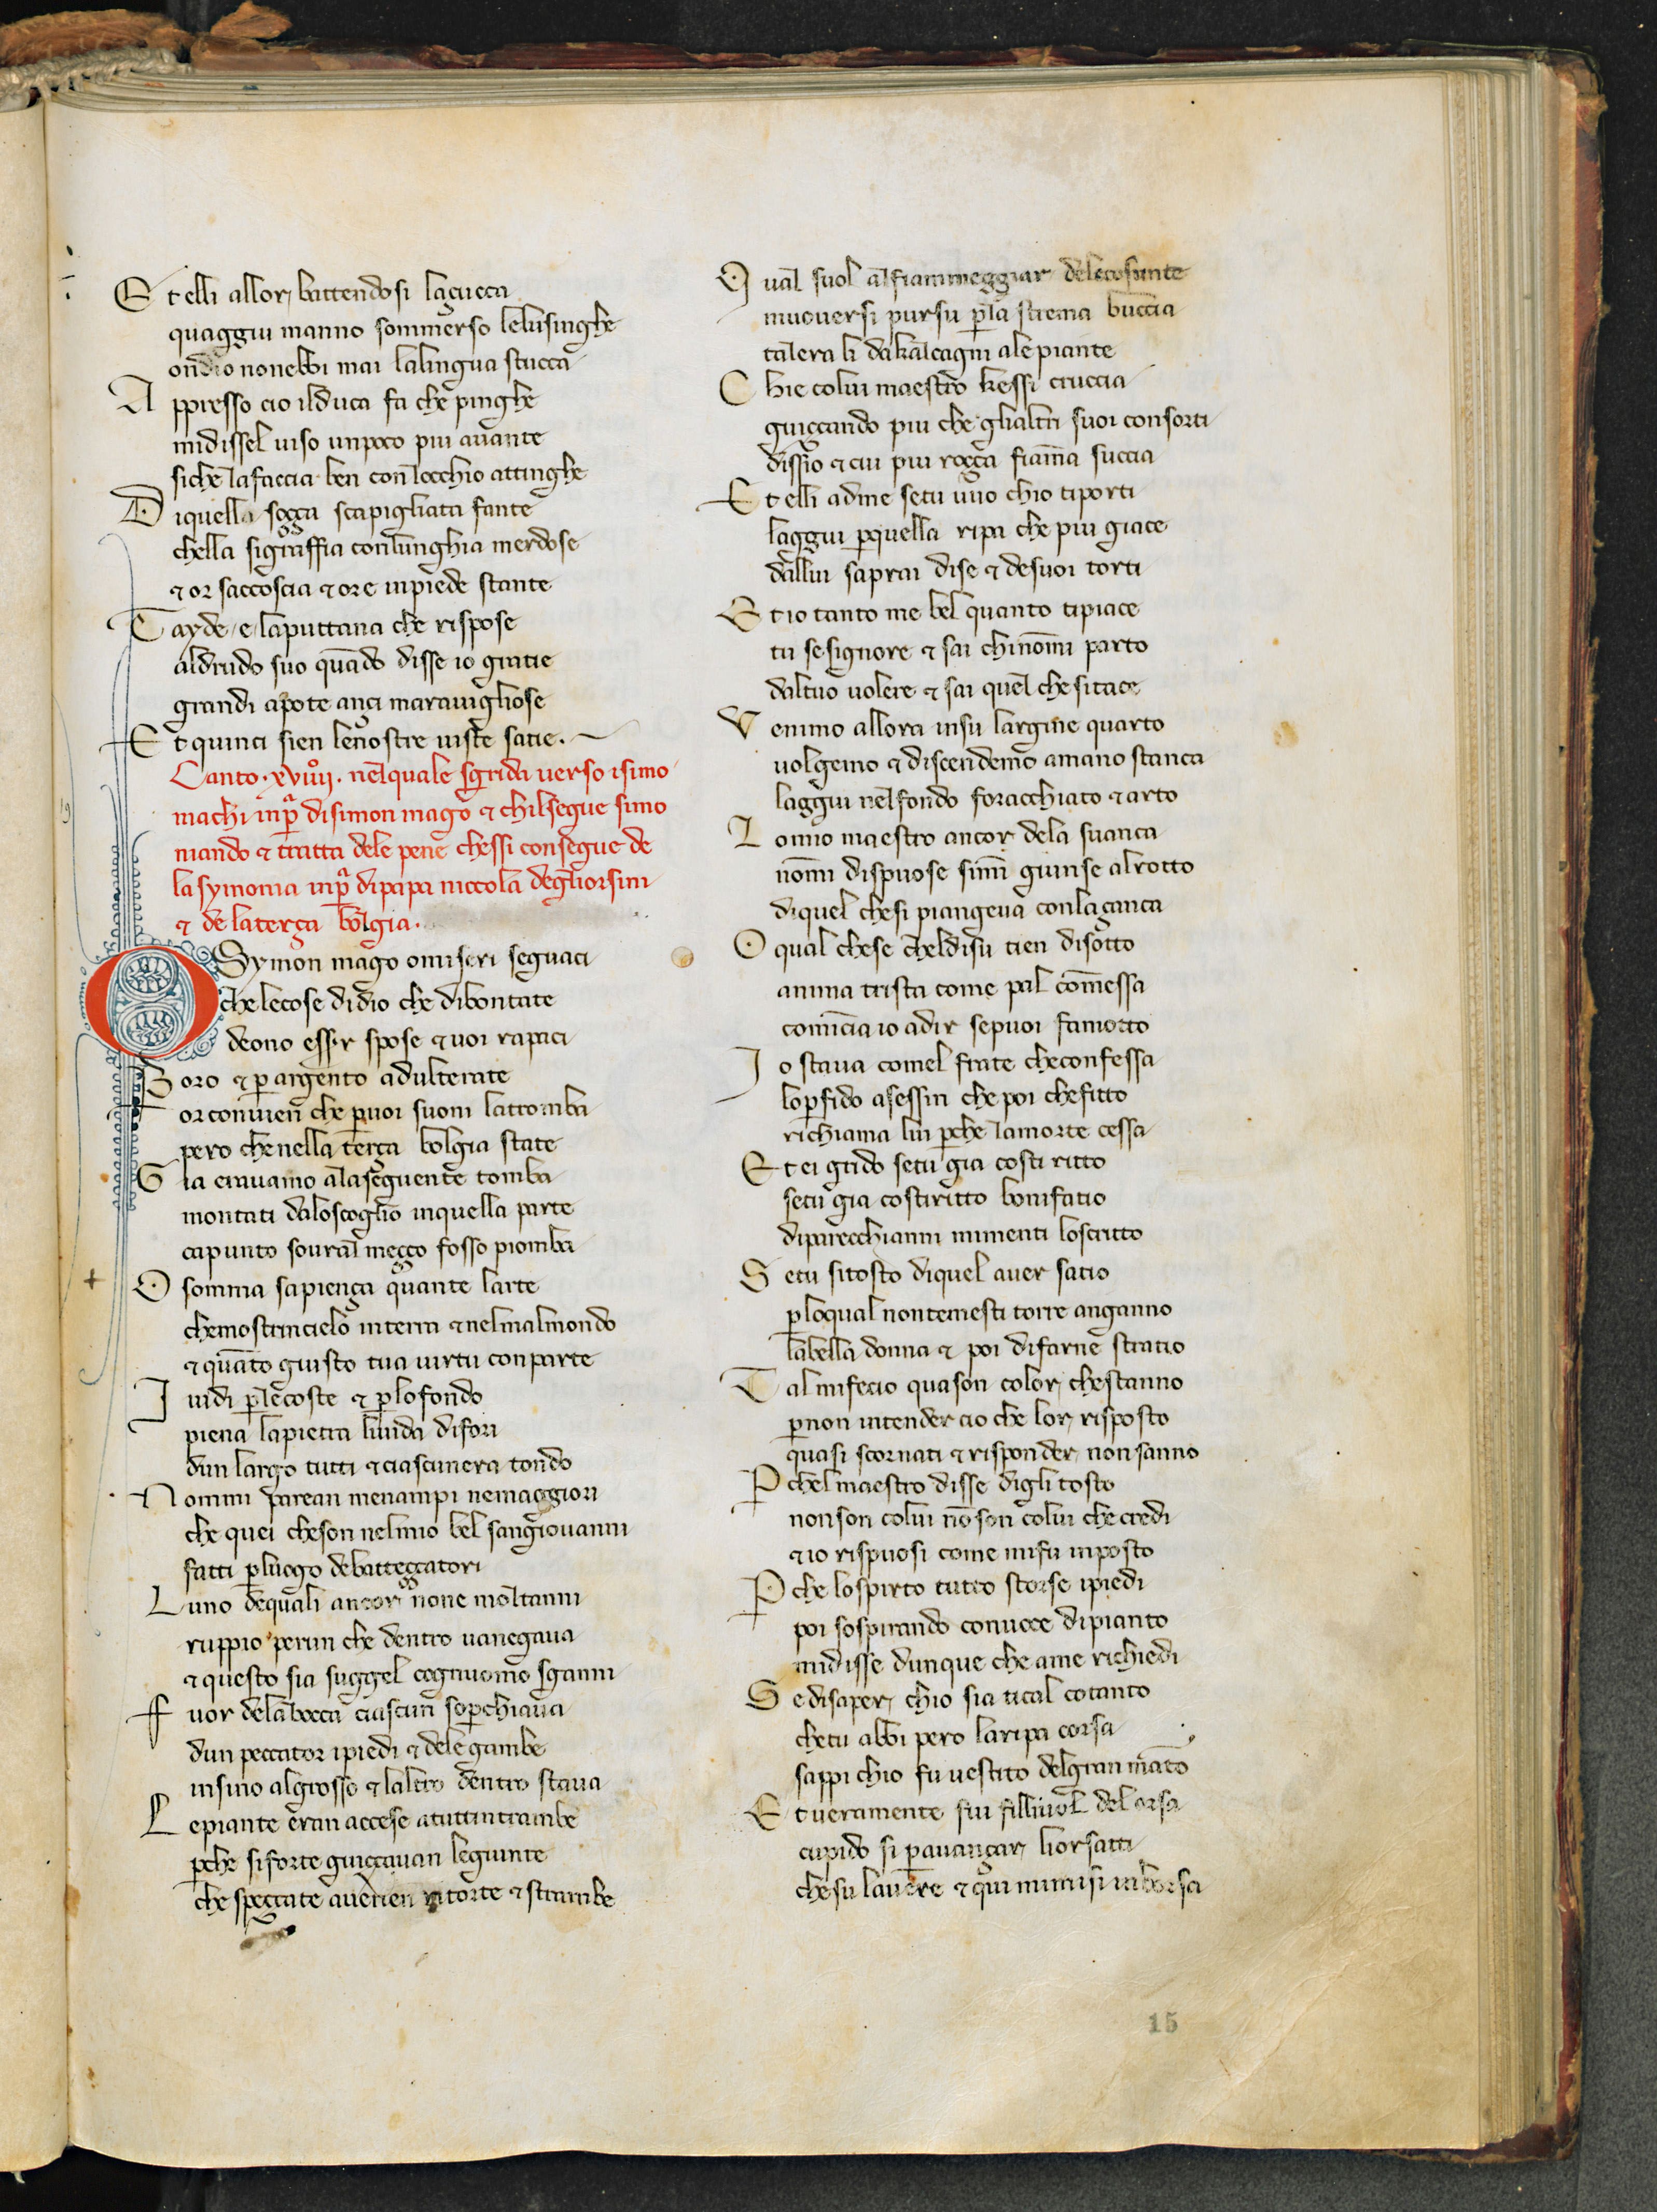 Et elli allor battendosi lacucca
quaggiu manno sommerso lelusinghe
ondio nonebbi mai lalingua stucca
Appresso cio ilduca fa che pinghe
midissel uiso unpoco piu auante
siche lafaccia ben conlocchio attinghe
Diquella soçça scapigliata fante
chella sigraffia conlunghia merdose
⁊ or saccoscia ⁊ ore inpiede stante
Tayde e laputtana che rispose
aldrudo suo quādo disse io gratie
grandi apote anci marauigliose
Et quinci sien lenostre uiste satie.
Canto .xviiij. nelquale sgrida uerso isimo
machi inp̄ disimon mago ⁊ chilsegue simo
niando ⁊ tratta dele pene chessi consegue de
la symonia inp̄ dipapa niccola degliorsini
⁊ de laterça bolgia.
O Symon mago omiseri seguaci
che lecose didio che dibontate
deono esser spose ⁊ uoi rapaci
P oro ⁊ p̱ argento adulterate
or conuien che p̱uoi suoni latromba
pero che nella terça bolgia state
Gia erauamo alaseguente tomba
montati daloscoglio inquella parte
capunto soural meçço fosso piomba
O somma sapiença quante larte
chemostrincielo interra ⁊ nelmalmondo
⁊ quāto giusto tua uirtu conparte
I uidi p̱lecoste ⁊ p̱lofondo
piena lapietra liuida difori
dun largo tutti ⁊ ciascunera tondo
Nommi parean menampi nemaggiori
che quei cheson nelmio bel sangiouanni
fatti p̱luogo debatteççatori
Luno dequali ancor none moltanni
ruppio perun che dentro uanegaua
⁊ questo sia suggel cognuomo sganni
Fuor delabocca ciascun sop̱chiaua
dun peccator ipiedi ⁊ dele gambe
insino algrosso ⁊ laltro dentro staua
Lepiante eran accese atuttintrambe
p̱che siforte guiççauan legiunte
che speççate auerien ritorte ⁊ strambe
Qual suol alfiammeggiar delecosunte
muouersi pursu p̱la strema buccia
talera li dakalcagni alepiante
Chie colui maestro kessi cruccia
guiççando piu che glialtri suoi consorti
dissio ⁊ cui piu roçça fiāma succia
Et elli adme setu uuo chio tiporti
laggiu p̱quella ripa che piu giace
dallui saprai dise ⁊ desuoi torti
Et io tanto me bel quanto tipiace
tu sesignore ⁊ sai chinōmi parto
daltuo uolere ⁊ sai quel che sitace
Venimo allora insu largine quarto
uolgemo ⁊ discendemo amano stanca
laggiu nelfondo foracchiato ⁊ arto
Lomio maestro ancor dela suanca
nōmi dispuose simi giunse alrotto
diquel chesi piangeua conlaçanca
O qual chese cheldisu tien disotto
anima trista come pal cōmessa
comīcia io adir sepuoi famotto
Io staua comel frate checonfessa
lop̱fido asessin che poi chefitto
richiama lui p̱che lamorte cessa
Et ei grido setu gia costi ritto
setu gia costiritto bonifatio
diparecchianni mimenti loscritto
Setu sitosto diquel auer satio
p̱loqual nontemesti torre anganno
labella donna ⁊ poi difarne stratio
Tal mifecio quason color chestanno
p̱non intender cio che lor risposto
quasi scornati ⁊ risponder non sanno
P chel maestro disse digli tosto
nonson colui nōson colui che credi
⁊ io rispuosi come mifu inposto
P che lospirto tutto storse ipiedi
poi sospirando conuoce dipianto
midisse dunque che ame richiedi
Se disaper chio sia tical cotanto
chetu abbi pero laripa corsa
sappi chio fu uestito delgran māto
Et ueramente fui filliuol del orsa
cupido si p̱auançar liorsatti
chesu lauere ⁊ qui mimisi inborsa
15